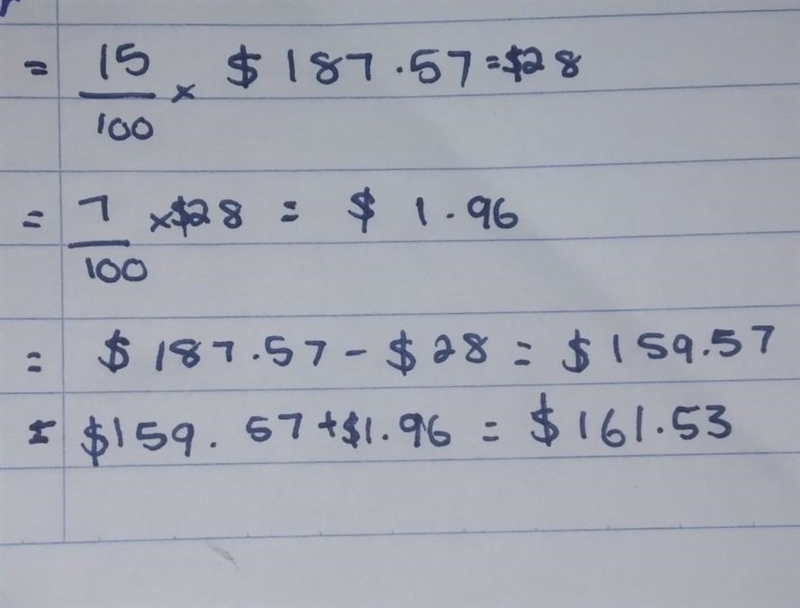 = 15/100 × $187.57 = $28
= 7/100 × $28 = $1.96
= $187.57 - $28 = $159.57
= $159.57 + $1.96 = $161.53